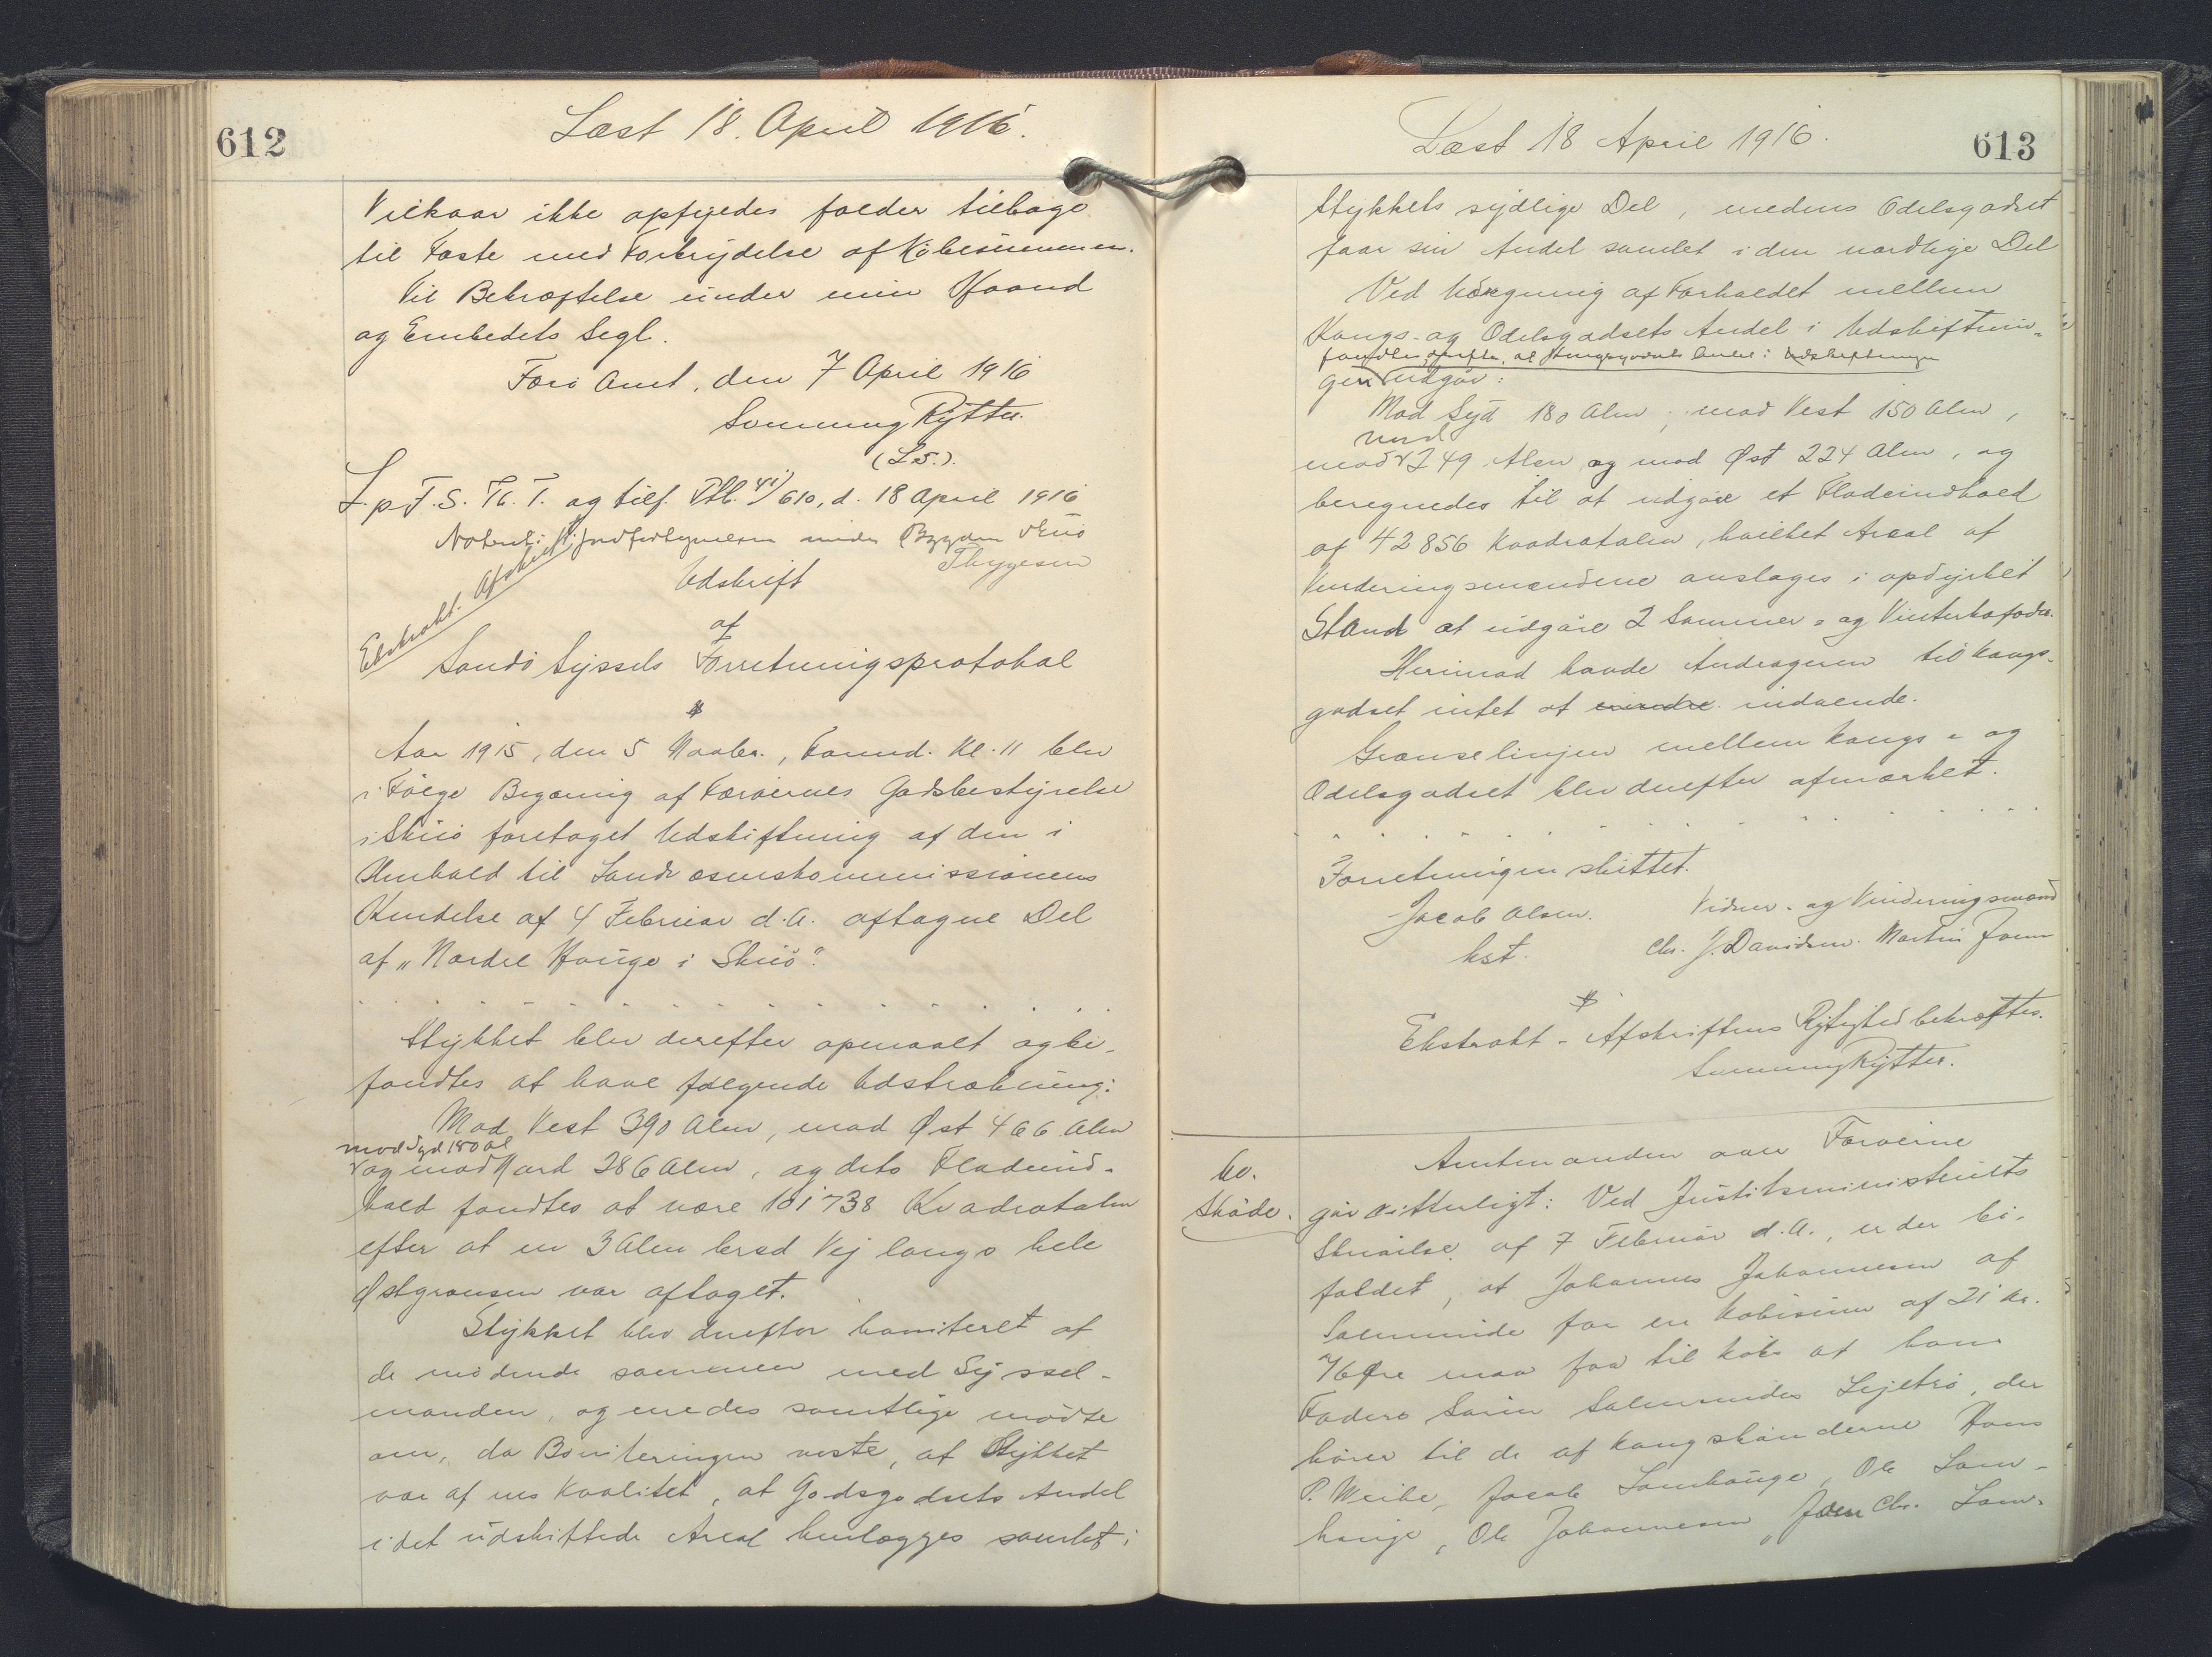 612
Læst 18. April 1916.
Vilkaar ikke opfyldes falder tilbage
til Fæste med Fortrydelse af Købesummen.
Til Bekræftelse under min Haand
og Embedets Segl.
Færø Amt, den 7 April 1916
Svenning Rytter.
(L.S.).
L. p. F. S. Th. T. og tilf. Prtl. 41/610, d. 18 April 1916
Noteret i Jordfortegnelsen under Bygden Skuø
Thygesen
Ekstrakt. Afskrift
Udskrift
af
Sandø Syssels Forretningsprotokol
Aar 1915, den 5 Novbr., Formd. Kl. 11 blev
i Følge Begæring af Færøernes Godsbestyrelse
i Skuø foretaget Udskiftning af den i
Henhold til Landvæsenskommissionens
Kendelse af 4 Februar d.A. aftagne Del
af "Nordre Hauge i Skuø".
. . . . . . . . . . . . . . .
Stykket blev derefter opmaalt og be-
fandtes at have følgende Udstrækning:
Mod Vest 390 Alen, mod Øst 466 Alen
mod Syd 180 Al
og mod Nord 286 Alen, og dets Fladeind-
hold fandtes at være 101738 Kvadratalen
efter at en 3 Alen bred Vej langs hele
Østgrænsen var aftaget.
Stykket blev derefter boniteret af
de mødende sammen med Syssel-
manden, og enedes samtlige mødte
om, da Boniteringen viste, at Stykket
var af ens Kvalitet, at Godsgodsets Andel
i det udskiftede Areal henlægges samlet i
613
Læst 18 April 1916.
Stykkets sydlige Del, medens Odelsgodset
faar sin Andel samlet i den nordlige Del
Ved Udregning af Forholdet mellem
Kongs- og Odelsgodsets Andel i Udskiftnin-
fandtes derefter at Kongsgodsets Andel i Udskiftningen
gen udgør:
Mod Syd 180 Alen, mod Vest 150 Alen,
Nord
mod 249 Alen og mod Øst 224 Alen, og
beregnedes til at udgøre et Fladeindhold
af 42856 Kvadratalen, hvilket Areal af
Vurderingsmændene ansloges i opdyrket
Stand at udgøre 2 Sommer- og Vinterkofoder.
Herimod havde Andrageren til Kongs-
godset intet at erindre indvende.
Grænselinjen mellem Kongs- og
Odelsgodset blev derefter afmærket.
. . . . . . . . . . . . . . .
Forretningen sluttet.
Jacob Olsen.
kst.
Vidner- og Vurderingsmænd
Chr. J. Davidsen. Martin Joen
Ekstrakt-Afskriftens Rigtighed bekræftes.
Svenning Rytter.
60.
Skøde.
Amtmanden over Færøerne
gør vitterligt: Ved Justitsministeriets
Skrivelse af 7 Februar d.A., er der bi-
faldet, at Johannes Johannesen af
Salmunde for en Købesum af 21 Kr.
76 Øre maa faa til Købs at hans
Faders Søren Salmundes Lejetrø, der
hører til de af Kongsbønderne Hans
P. Weihe, Jacob Lamhauge, Ole Lam-
hauge, Ole Johannesen, Joen Chr. Lam-